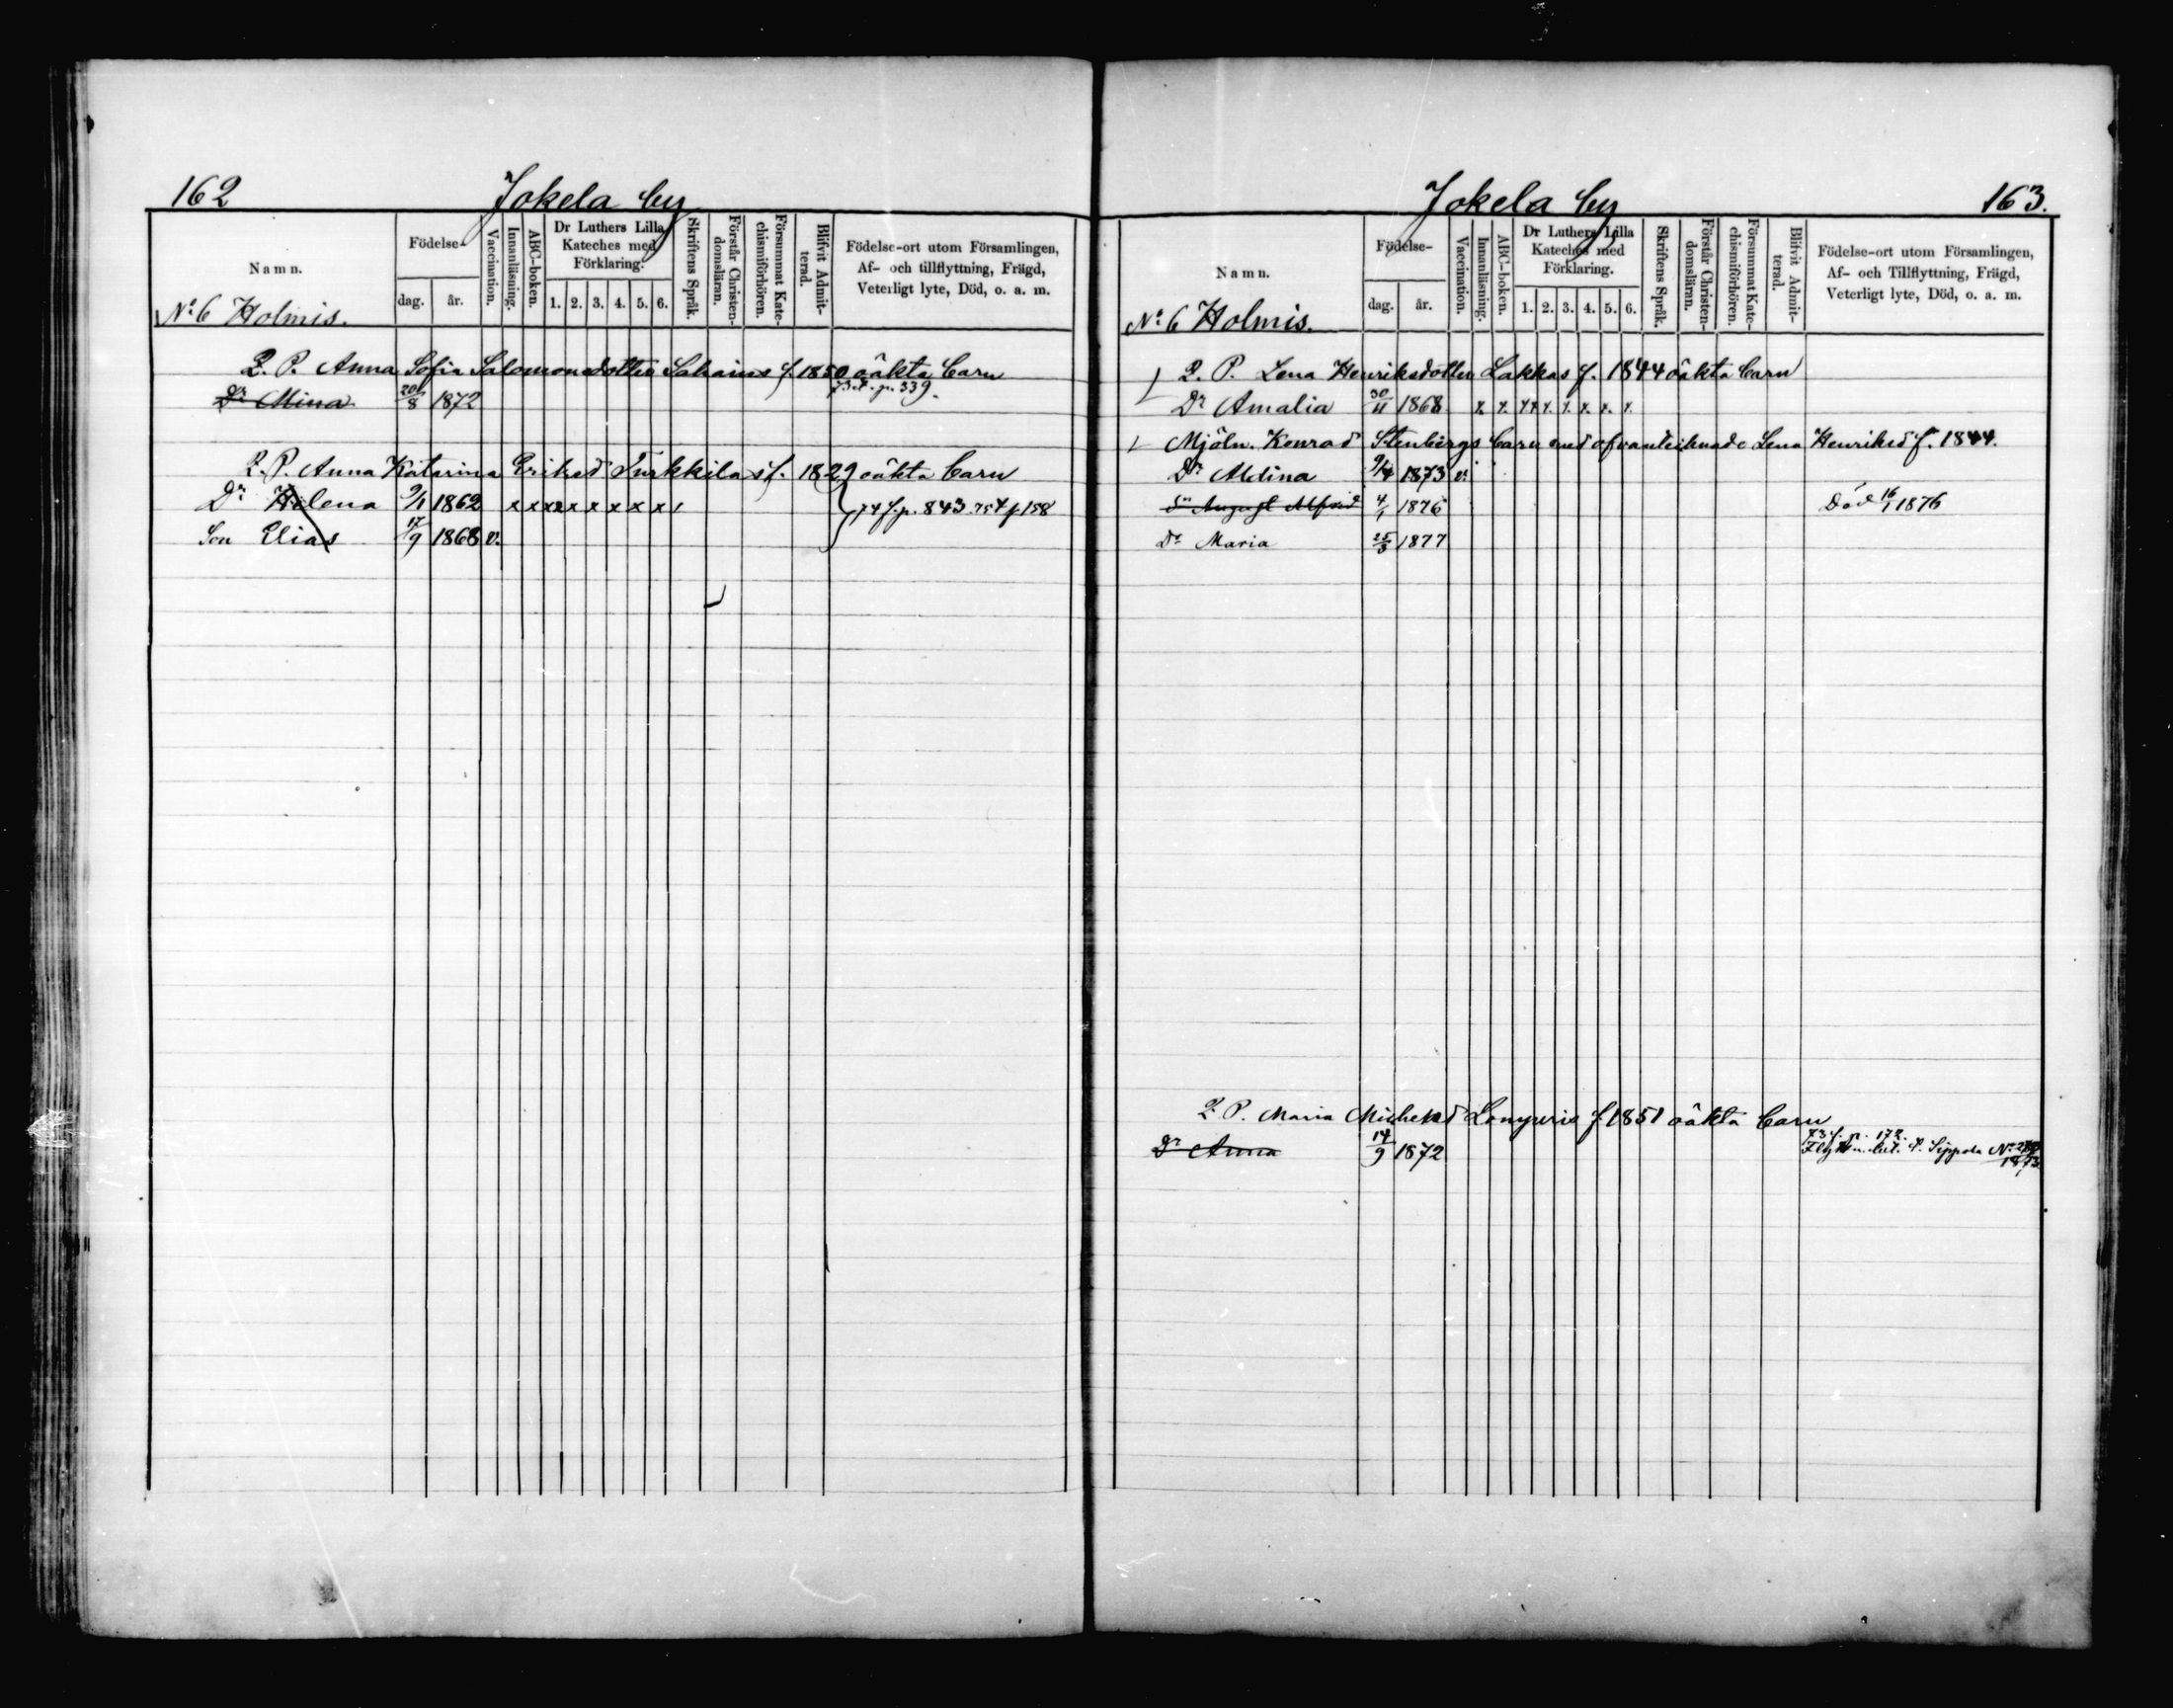 162 Jokela by
Namn. Födelse- dag. år. Vaccination. Innanläsning. ABC-boken. Dr Luthers Lilla Kateches med Förklaring. 1. 2. 3. 4. 5. 6. Skriftens Språk. Förstår Christen-domsläran. Försummat Kate-chismiförhören. Blifvit Admit-terad. Födelse-ort utom Församlingen, Af- och tillflyttning, Frägd, Veterligt lyte, Död, o. a. m.
No 6 Holmis.
Q. P. Anna Sofia Salomonsdotter f. 1850 oäkta barn
Dr Mina 20/8 1872 73. f. p. 339.
Q. P. Anna Katarina Eriksd Turkkila s f. 1829 oäkta barn
Dr Helena 9/1 1862 x x x x x x x x x 74 f. p. 843. 75 f p 158
Son Elias 17/9 1868 v.
Jokela by 163.
Namn. Födelse- dag. år. Vaccination. Innanläsning. ABC-boken. Dr Luthers Lilla Kateches med Förklaring. 1. 2. 3. 4. 5. 6. Skriftens Språk. Förstår Christen-domsläran. Försummat Kate-chismiförhören. Blifvit Admit-terad. Födelse-ort utom Församlingen, Af- och Tillflyttning, Frägd, Veterligt lyte, Död, o. a. m.
No 6 Holmis.
Q. P. Lena Henriksdotter Lakkas f. 1844 oäkta barn
Dr Amalia 30/11 1868 x. x. x x x. x. x. x. x.
Mjöln. Konrad Stenbergs barn med ofvanteiknade Lena Henriksd f. 1844.
Dr Aldina 9/4 1873 v.
Sn August Alfrid 4/1 1876 Död 16/1 1876
Dr Maria 25/3 1877
Q. P. Maria Michelsd f. 1851 oäkta barn
Dr Anna 14/9 1872 73 f. p. 172.
Flytt m. bet. t. Sippola No
1873